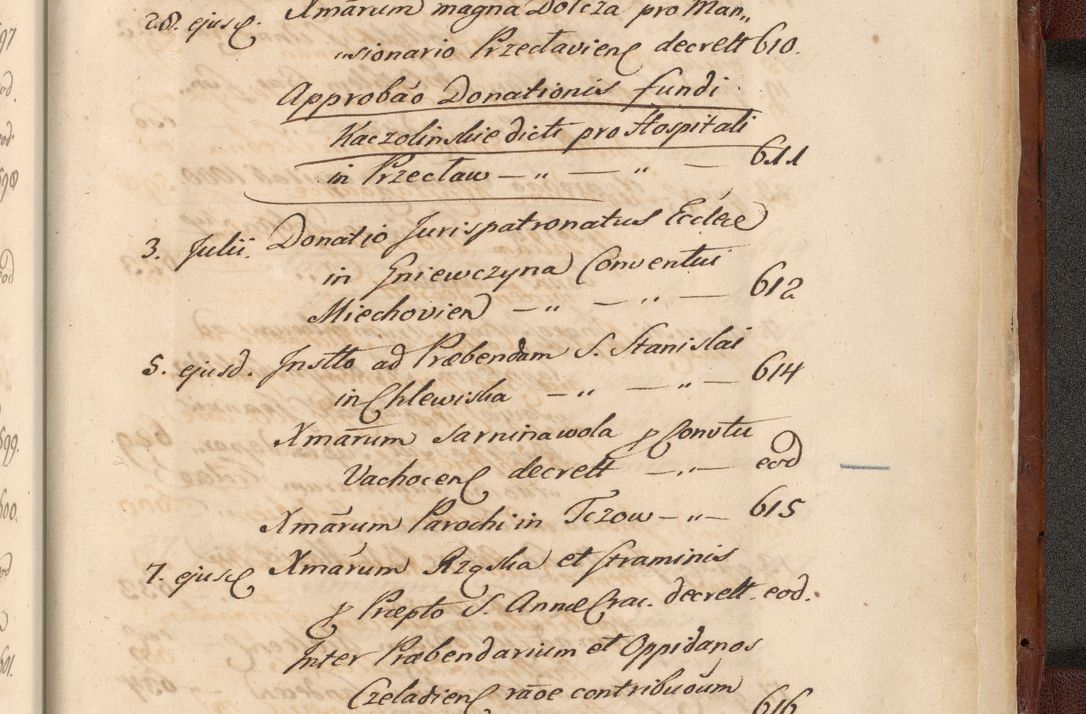 28. ejusq. Xmārum magna Dolcza pro Man„
sionario Przecłavien decrett 610.
Approbāo Donationis fundi
Kaczolinskie dicti pro Hospitali
in Przecław — „ — „ — 611
3. Julii. Donatio Jurispatronatus Ecclae
in Gniewczyna Conventui
Miechovien — „ — „ — 612
5. ejusd. Instto ad Præbendam S. Stanislai
in Chlewiska — „ — „ — 614
Xmārum Sarnina wola p Convtu
Vachocen decrett — „ — eod
Xmārum Parochi in Tczow — „ — 615
7. ejusq Xmārum Rzqska et Straminis
p Præpto S. Annæ Crac. decrett. eod.
Inter Præbendarium et Oppidanos
Czeladien rāoe contribuōum 616
97
od.
eod.
698
eod
599.
600.
eod
601.